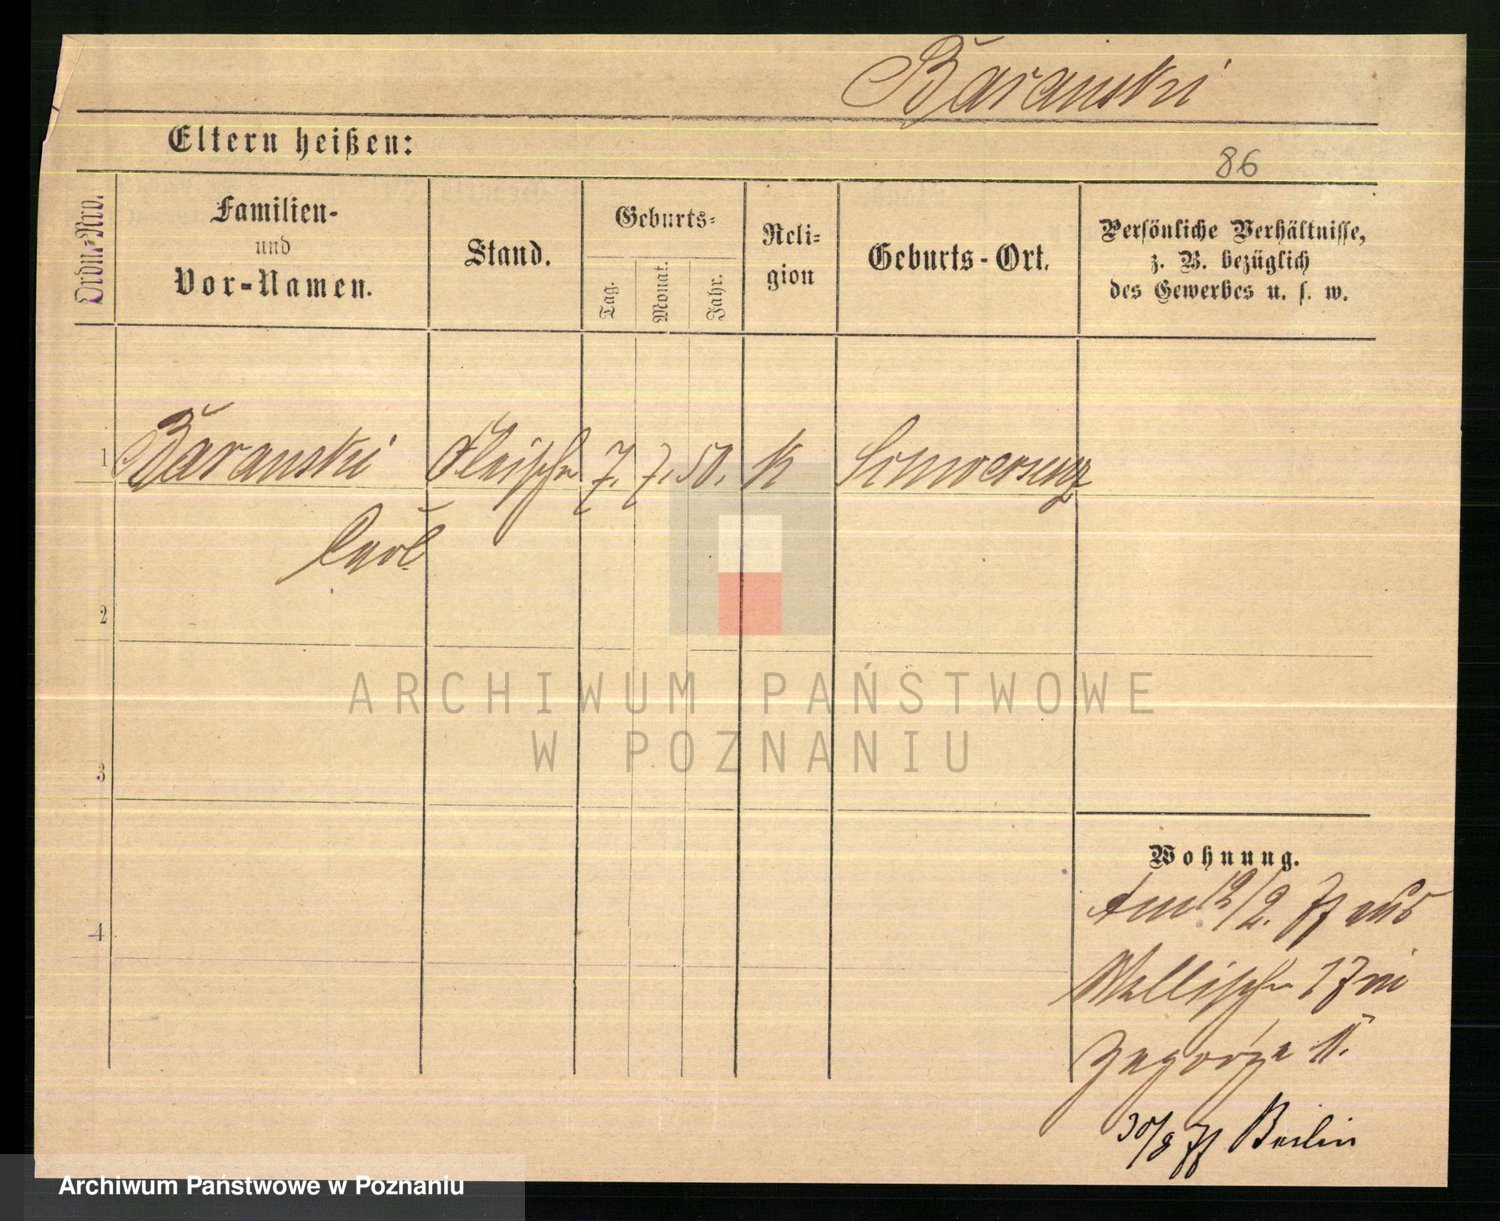 Baranski
86
Eltern heißen:
Ordn.-Nro.
Familien-
und
Vor-Namen.
Stand.
Geburts-
Tag.
Monat.
Jahr.
Reli-
gion
Geburts-Ort.
Persönliche Verhältnisse,
z. B. bezüglich
des Gewerbes u. s. w.
1 Baranski Fleischer 7. 7. 50. K
Carl
2
3
4
Wohnung.
Am 12/2. 77 aus
Wallischei 17 in
Zagorze 11.
30/8 77 Berlin
ARCHIWUM PAŃSTWOWE
W POZNANIU
Archiwum Państwowe w Poznaniu